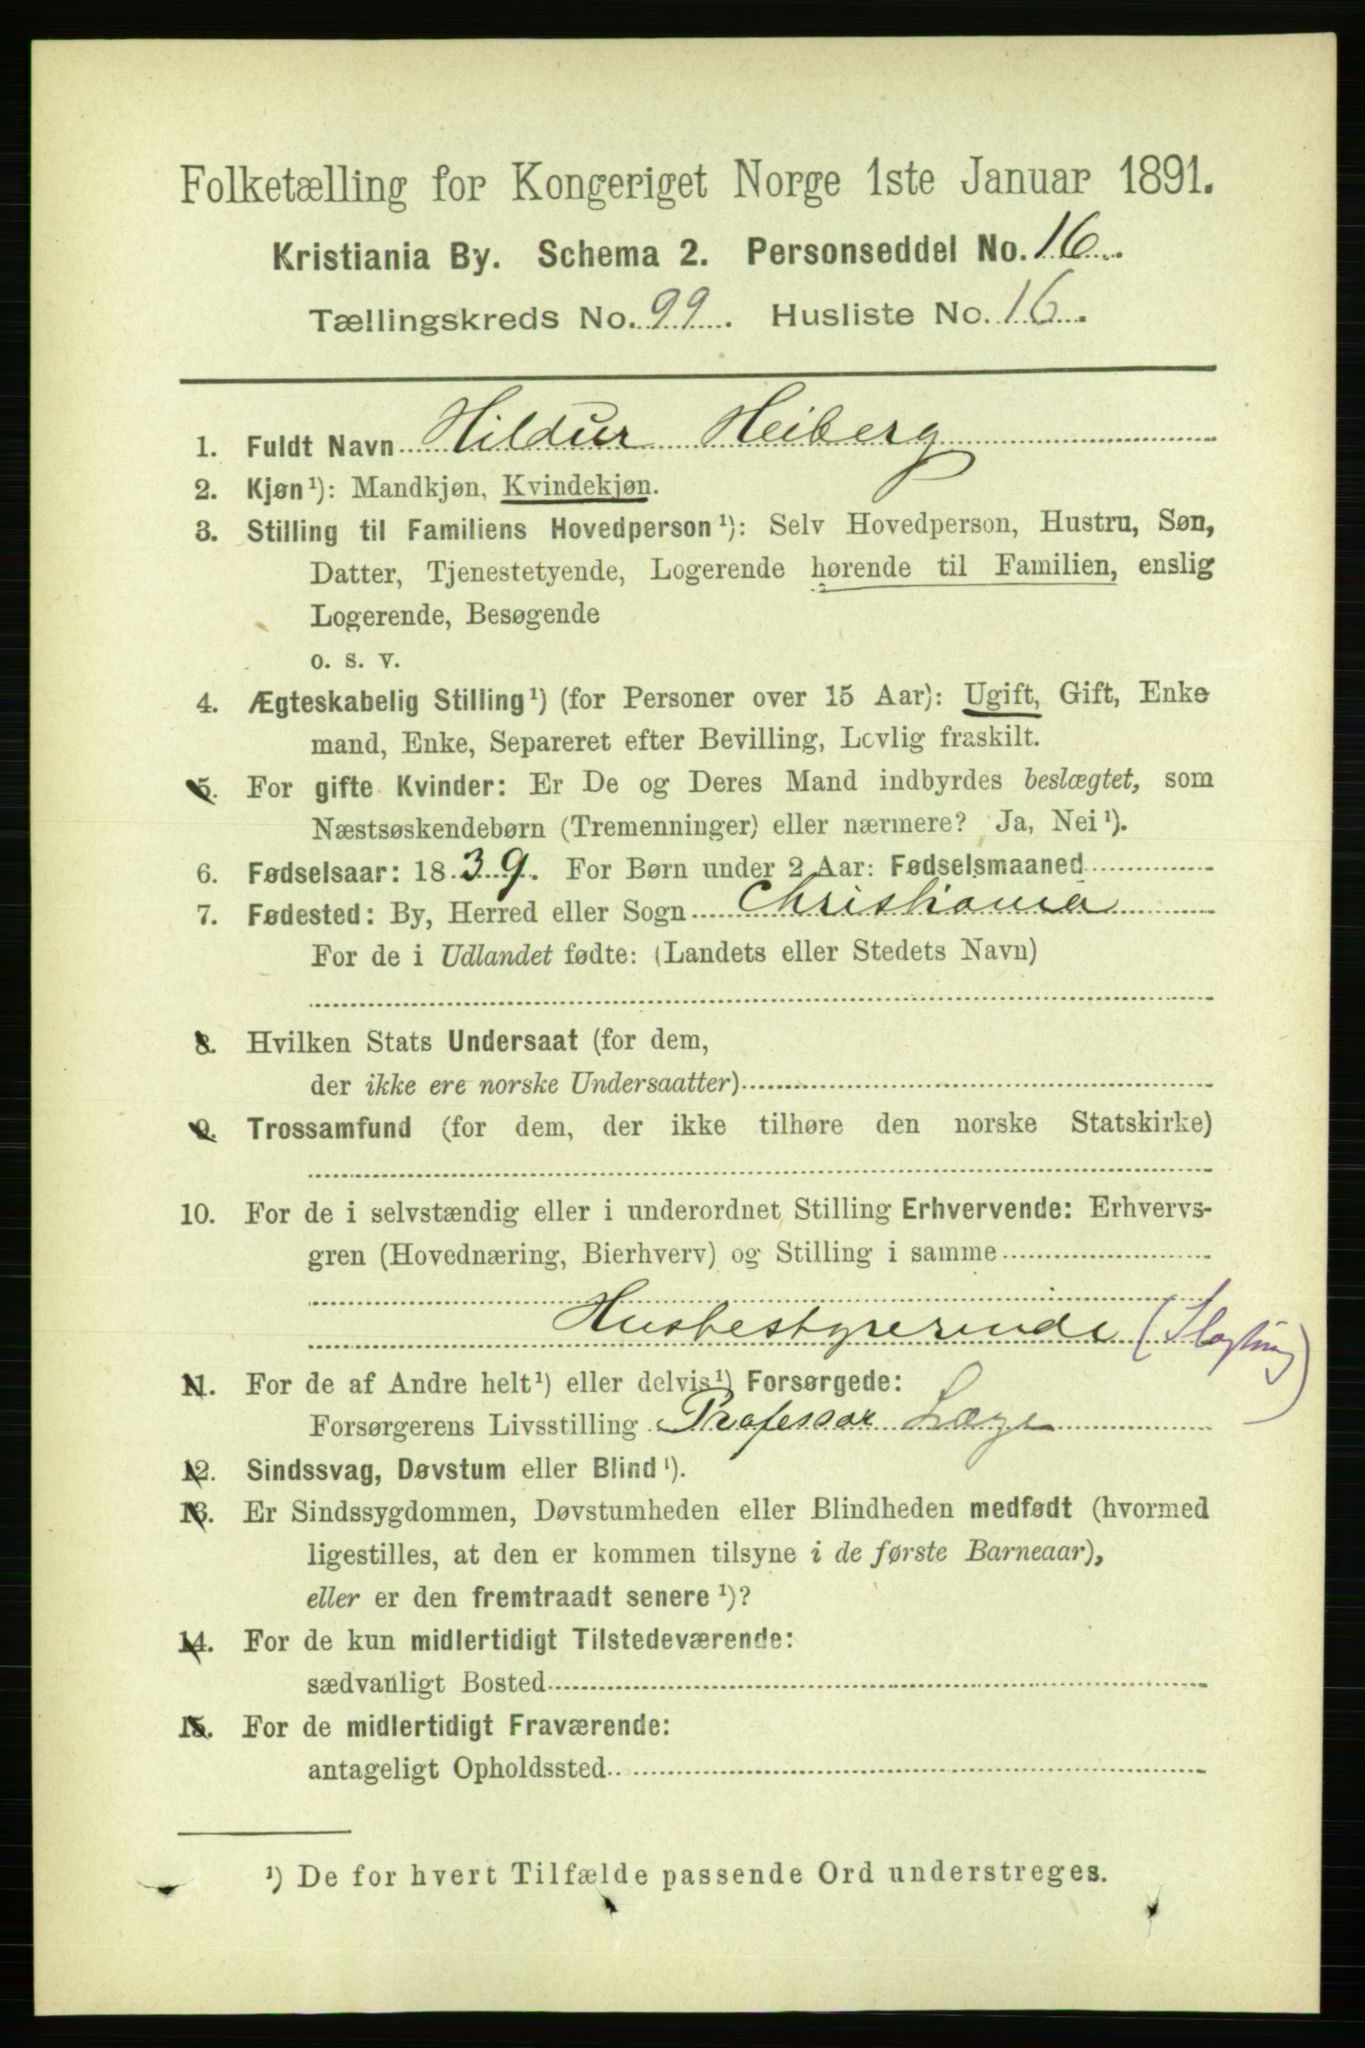 Folketælling for Kongeriget Norge 1ste Januar 1891.
Kristiania By. Schema 2. Personseddel No. 16
Tællingskreds No. 99. Husliste No. 16.
1. Fuldt Navn Hildur Heiberg
2. Kjøn¹): Mandkjøn, Kvindekjøn.
3. Stilling til Familiens Hovedperson¹): Selv Hovedperson, Hustru, Søn,
Datter, Tjenestetyende, Logerende hørende til Familien, enslig
Logerende, Besøgende
o. s. v.
4. Ægteskabelig Stilling¹) (for Personer over 15 Aar): Ugift, Gift, Enke
mand, Enke, Separeret efter Bevilling, Lovlig fraskilt.
5. For gifte Kvinder: Er De og Deres Mand indbyrdes beslægtet, som
Næstsøskendebørn (Tremenninger) eller nærmere? Ja, Nei¹).
6. Fødselsaar: 1839. For Børn under 2 Aar: Fødselsmaaned
7. Fødested: By, Herred eller Sogn Christiania
For de i Udlandet fødte: (Landets eller Stedets Navn)
8. Hvilken Stats Undersaat (for dem,
der ikke ere norske Undersaatter)
9. Trossamfund (for dem, der ikke tilhøre den norske Statskirke)
10. For de i selvstændig eller i underordnet Stilling Erhvervende: Erhvervs-
gren (Hovednæring, Bierhverv) og Stilling i samme
Husbestyrerinde (Slagtning)
11. For de af Andre helt¹) eller delvis¹) Forsørgede:
Forsørgerens Livsstilling Professor Læge
12. Sindssvag, Døvstum eller Blind¹).
13. Er Sindssygdommen, Døvstumheden eller Blindheden medfødt (hvormed
ligestilles, at den er kommen tilsyne i de første Barneaar),
eller er den fremtraadt senere¹)?
14. For de kun midlertidigt Tilstedeværende:
sædvanligt Bosted
15. For de midlertidigt Fraværende:
antageligt Opholdssted
¹) De for hvert Tilfælde passende Ord understreges.